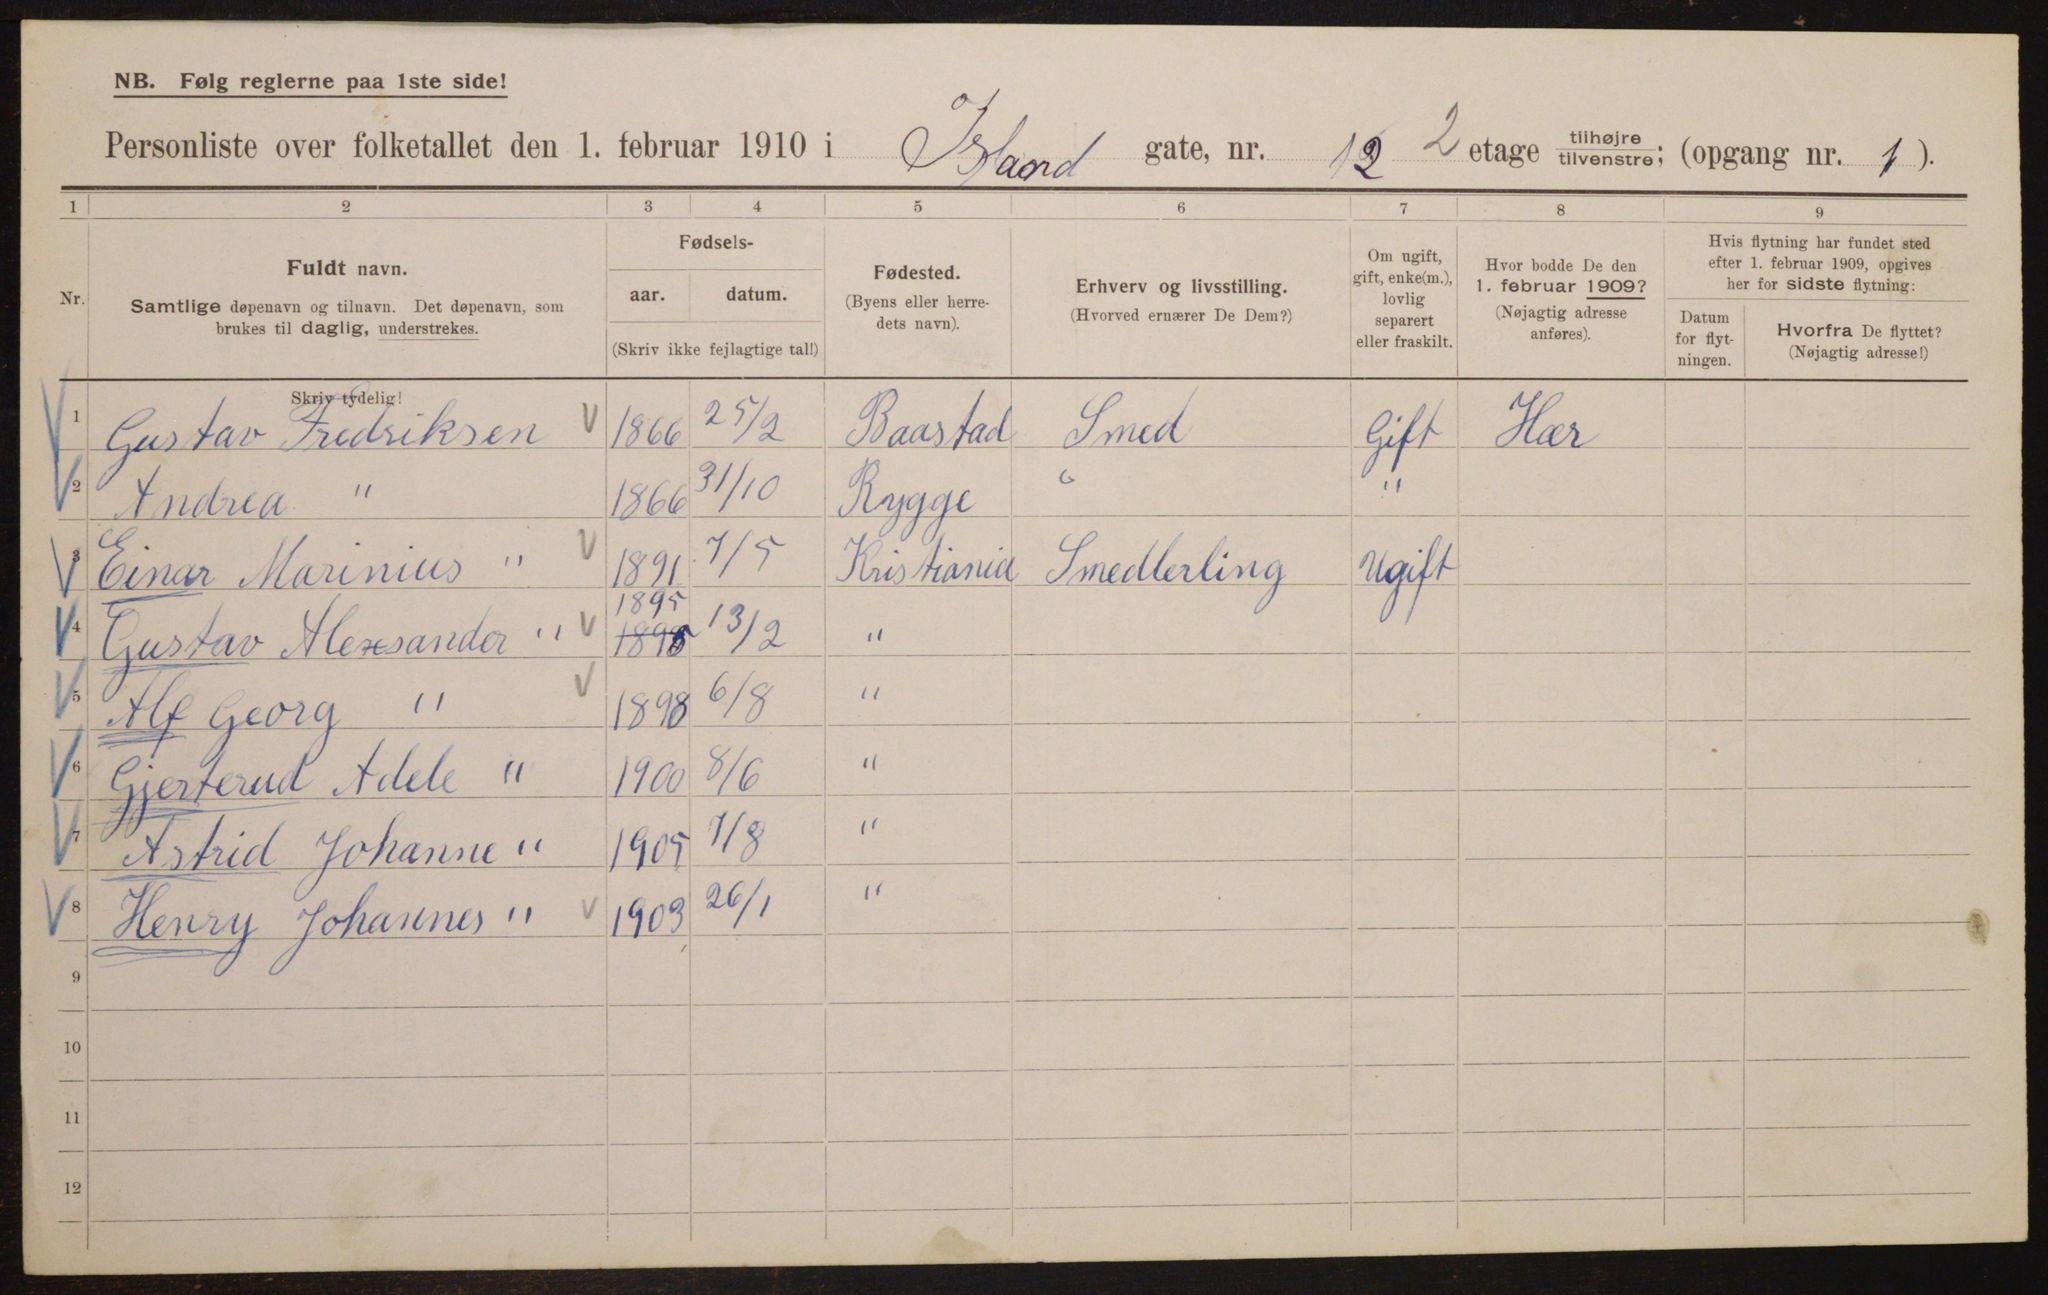 NB. Følg reglerne paa 1ste side!
Personliste over folketallet den 1. februar 1910 i Island gate, nr. 12 2 etage tilhøjre/tilvenstre; (opgang nr. 1).
1 2 3 4 5 6 7 8 9
Nr.
Fuldt navn.
Samtlige døpenavn og tilnavn. Det døpenavn, som
brukes til daglig, understrekes.
Fødsels-
aar. datum.
(Skriv ikke fejlagtige tal!)
Fødested.
(Byens eller herre-
dets navn).
Erhverv og livsstilling.
(Hvorved ernærer De Dem?)
Om ugift,
gift, enke(m.),
lovlig
separert
eller fraskilt.
Hvor bodde De den
1. februar 1909?
(Nøjagtig adresse
anføres).
Hvis flytning har fundet sted
efter 1. februar 1909, opgives
her for sidste flytning:
Datum
for flyt-
ningen.
Hvorfra De flyttet?
(Nøjagtig adresse!)
Skriv tydelig!
1 Gustav Fredriksen 1866 25/2 Baastad Smed Gift Hær
2 Andrea " 1866 31/10 Rygge " "
3 Einar Marinius " 1891 7/5 Kristiania Smedlerling Ugift
1895
4 Gustav Alexsander " 1895 13/2 "
5 Alf Georg " 1898 6/8 "
6 Gjerterud Adele " 1900 8/6 "
7 Astrid Johanne " 1905 7/8 "
8 Henry Johannes " 1903 26/1 "
9
10
11
12